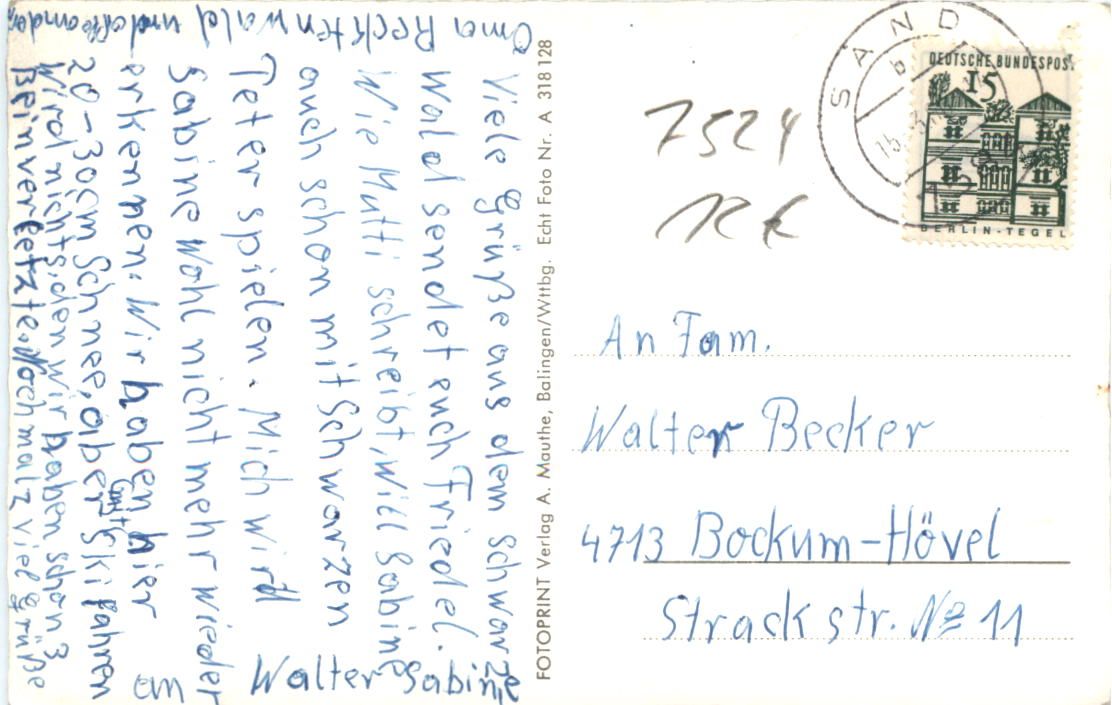 Viele grüße aus dem Schwarze
Wald sendet euch Friedel.
Wie Mutti schreibt, will Sabine
auch schon mit Schwarzen
Teter spielen. Mich wird
Sabine wohl nicht mehr wieder
erkennen. Wir haben hier
20-30cm Schnee, aber Ski fahren
wird nichts, den wir haben schon 3
Beinverletzte. Nochmalz viel grüße
an Walter Sabine
Oma Recktenwald und
7524
12 €
SAND
b
DEUTSCHE BUNDESPOST
15
BERLIN-TEGEL
An Fam.
Walter Becker
4713 Bockum-Hövel
Strackstr. № 11
FOTOPRINT Verlag A. Mauthe, Balingen/Wttbg. Echt Foto Nr. A 318 128